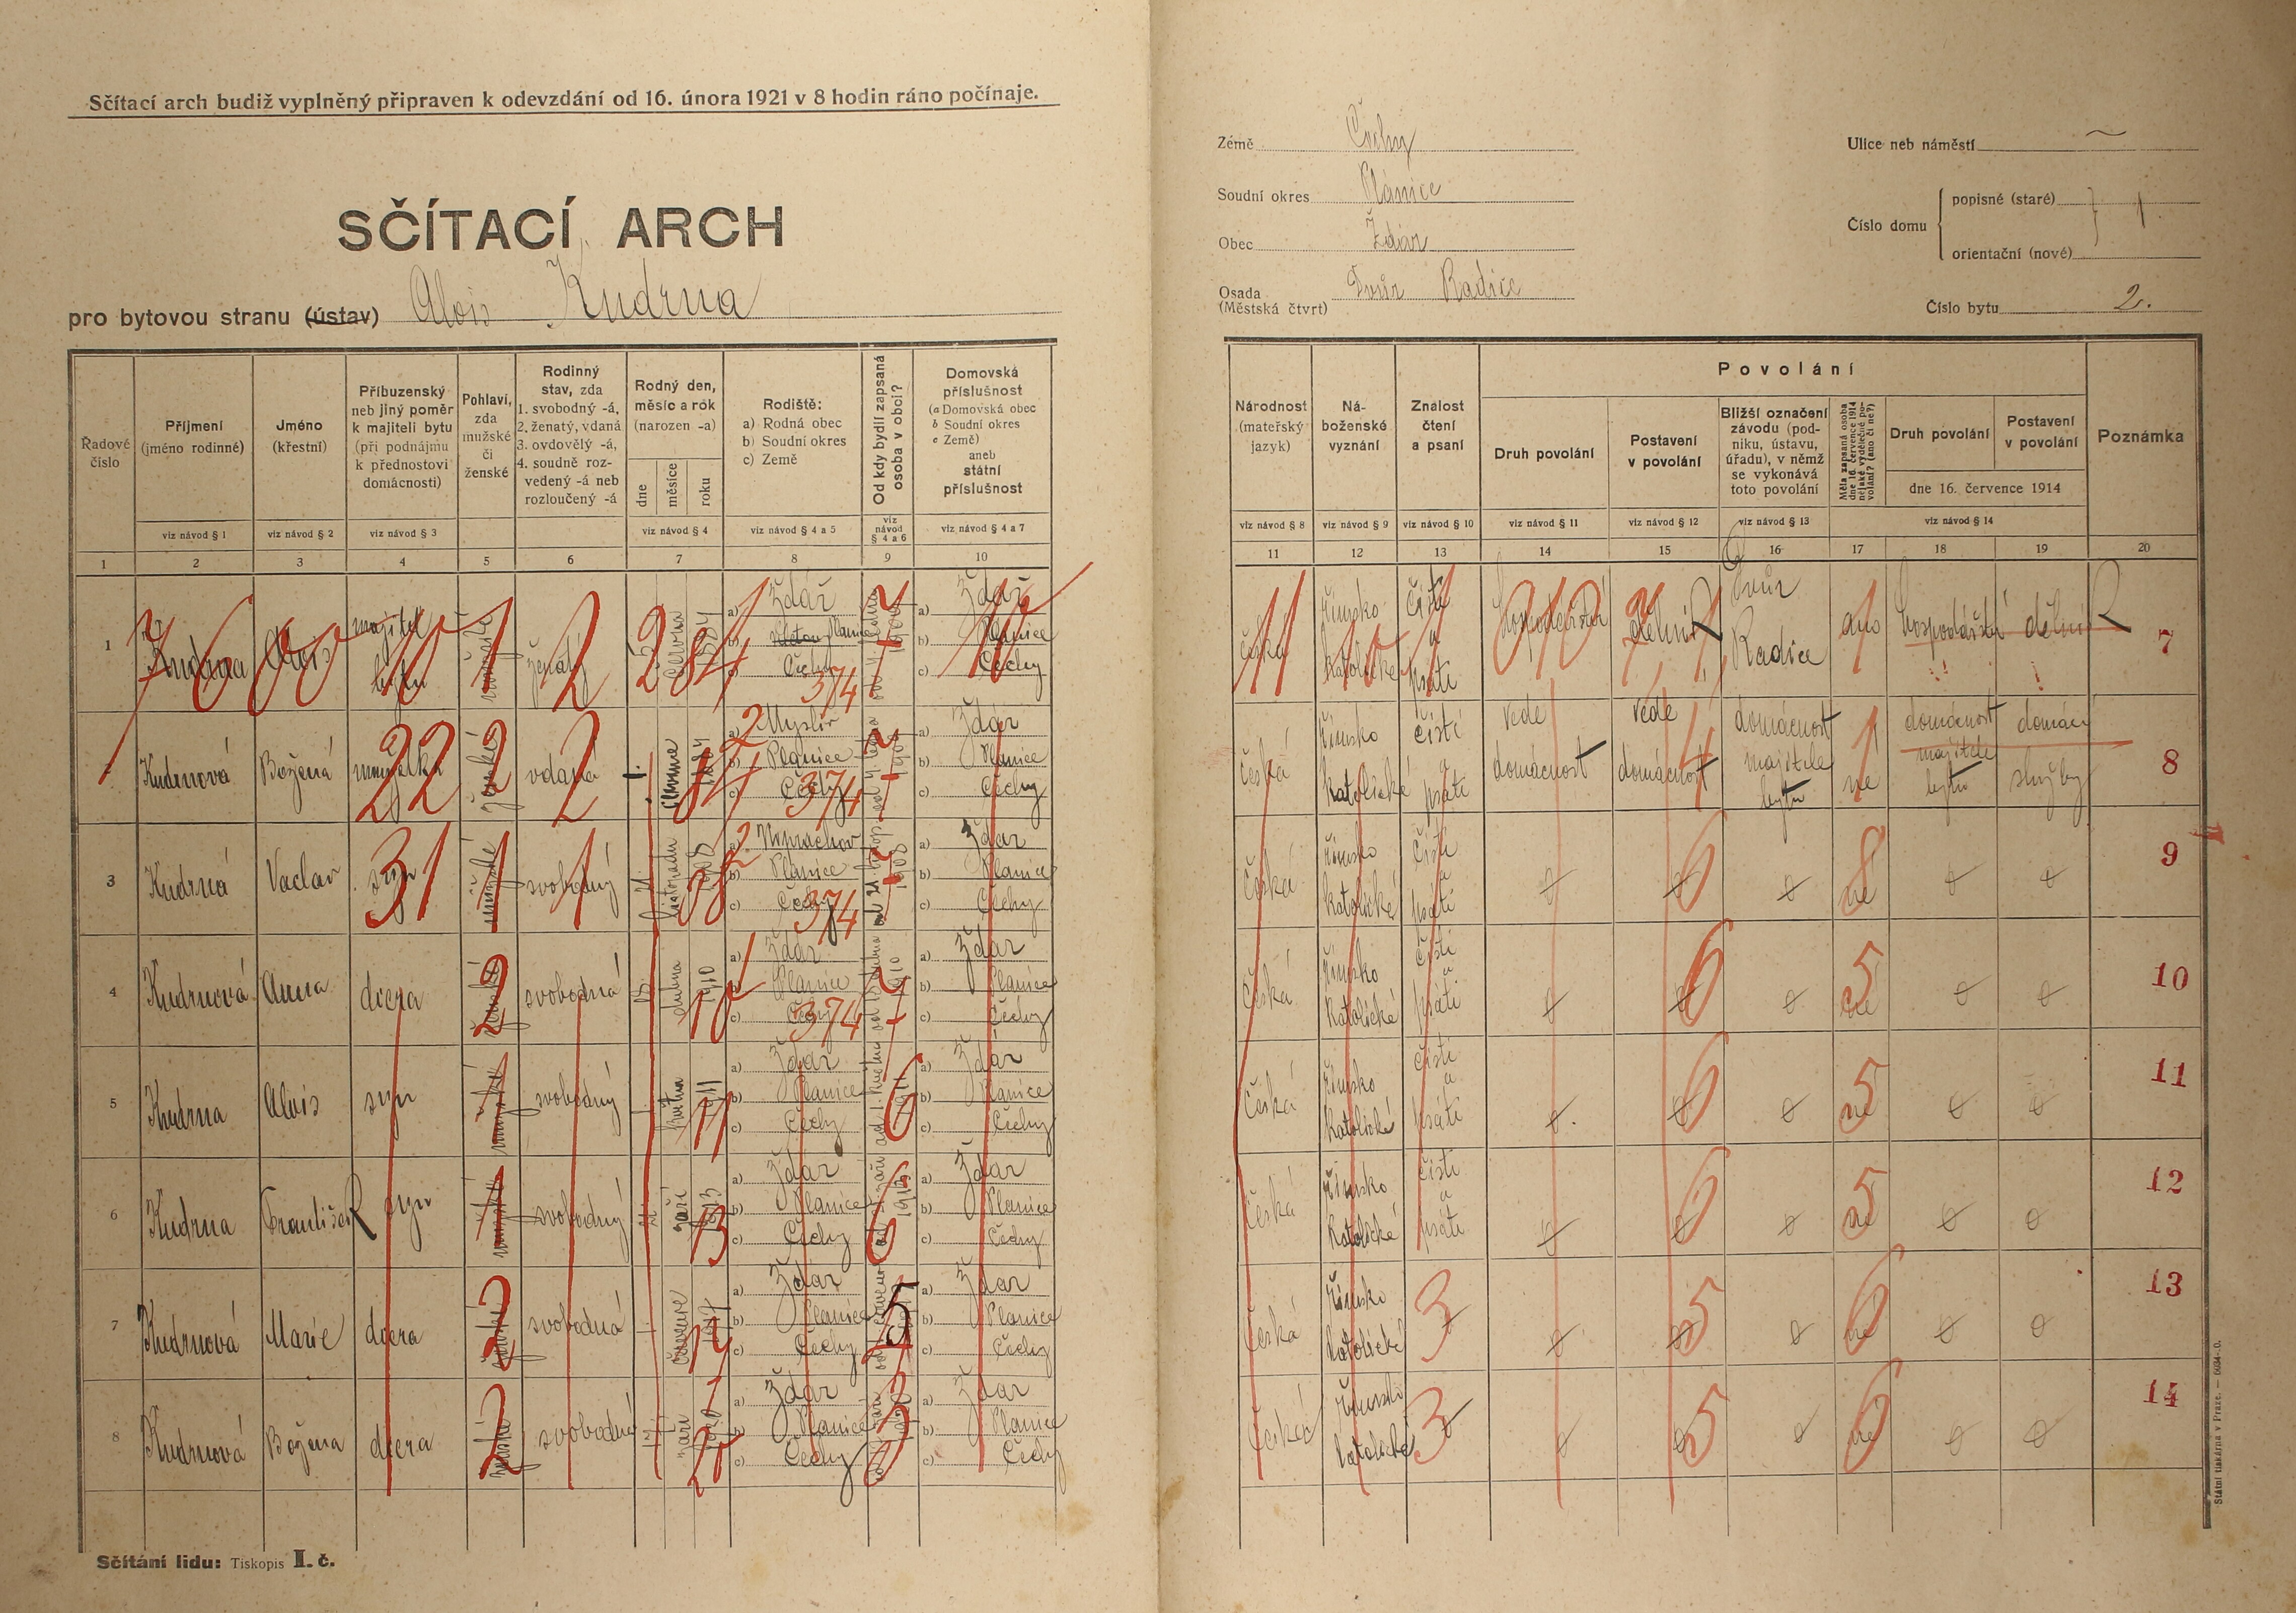 Sčítací arch budiž vyplněný připraven k odevzdání od 16. února 1921 v 8 hodin ráno počínaje.
SČÍTACÍ ARCH
pro bytovou stranu (ústav) Alois Kudrna
Země Čechy
Soudní okres Plánice
Obec Ždár
Osada Dvůr Radice
(Městská čtvrt)
Ulice neb náměstí
Číslo domu
popisné (staré)
orientační (nové)
1
Číslo bytu 2.
Řadové číslo
Příjmení (jméno rodinné)
viz návod § 1
Jméno (křestní)
viz návod § 2
Příbuzenský neb jiný poměr k majiteli bytu (při podnájmu k přednostovi domácnosti)
viz návod § 3
Pohlaví, zda mužské či ženské
Rodinný stav, zda 1. svobodný -á, 2. ženatý, vdaná 3. ovdovělý -á, 4. soudně rozvedený -á neb rozloučený -á
Rodný den, měsíc a rok (narozen -a)
dne měsíce roku
viz návod § 4
Rodiště: a) Rodná obec b) Soudní okres c) Země
viz návod § 4 a 5
Od kdy bydlí zapsaná osoba v obci?
viz návod § 4 a 6
Domovská příslušnost (a Domovská obec b Soudní okres c Země) aneb státní příslušnost
viz návod § 4 a 7
Národnost (mateřský jazyk)
viz návod § 8
Náboženské vyznání
viz návod § 9
Znalost čtení a psaní
viz návod § 10
Povolání
Druh povolání
viz návod § 11
Postavení v povolání
viz návod § 12
Bližší označení závodu (podniku, ústavu, úřadu), v němž se vykonává toto povolání
viz návod § 13
Měla zapsaná osoba dne 16. července 1914 nějaké výdělečné povolání? (ano či ne?)
Druh povolání
Postavení v povolání
dne 16. července 1914
viz návod § 14
Poznámka
1 2 3 4 5 6 7 8 9 10 11 12 13 14 15 16 17 18 19 20
1 Kudrna Alois majitel bytu mužské ženatý června a) Ždár b) Planice c) Čechy 374 a) Ždár b) Planice c) Čechy
česká římsko katolické čísti a psáti Dvůr Radice ano 7
Kudrnová Božená vdaná 1. července a) Myslív b) Planice c) Čechy 374 a) Ždár b) Planice c) Čechy
česká římsko katolické čísti a psáti vede domácnost vede domácnost domácnost majitele bytu ne domácnost majitele bytu domácí služby 8
3 Kudrná Vaclav syn mužské svobodný listopadu 1908 a) b) Planice c) Čechy 374 1908 a) Ždár b) Planice c) Čechy
česká římsko katolické čísti a psáti ne 9
4 Kudrnová Anna dcera ženské svobodná 1910 a) Ždár b) Planice c) Čechy 374 1910 a) Ždár b) Planice c) Čechy
česká římsko katolické čísti a psáti ne 10
5 Kudrna Alois syn mužské svobodný května 1911 a) Ždár b) Planice c) Čechy a) Ždár b) Planice c) Čechy
česká římsko katolické čísti a psáti ne 11
6 Kudrna František syn mužské svobodný září 1913 a) Ždár b) Planice c) Čechy a) Ždár b) Planice c) Čechy
česká římsko katolické čísti a psáti ne 12
7 Kudrnová Marie dcera ženské svobodná 1. července a) Ždár b) Planice c) Čechy a) Ždár b) Planice c) Čechy
česká římsko katolické 3 ne 13
8 Kudrnová Božena dcera ženské svobodná září a) Ždár b) Planice c) Čechy a) Ždár b) Planice c) Čechy
česká katolické 3 ne 14
Sčítání lidu: Tiskopis I. č.
Státní tiskárna v Praze.